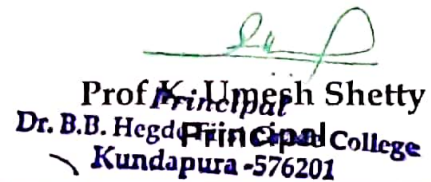 Prof K. Umesh Shetty
Principal
Principal
Dr. B.B. Hegde College
Kundapura -576201